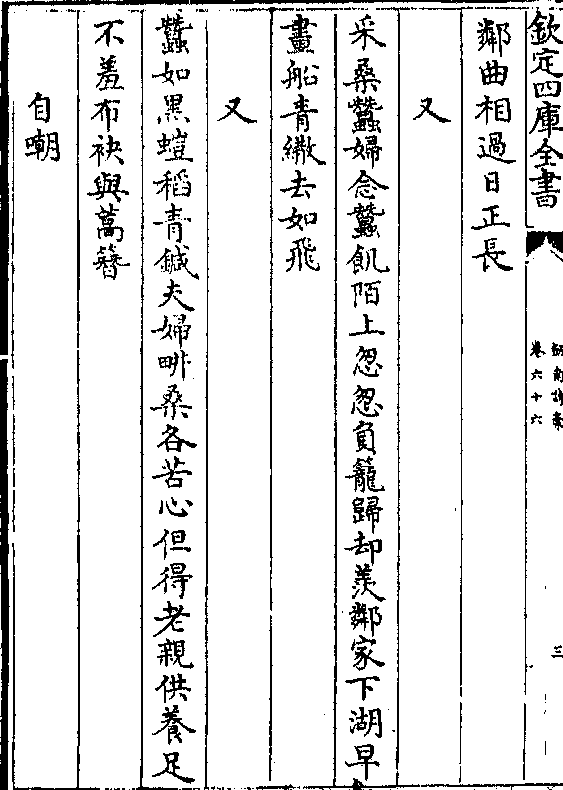 欽定四庫全書
劍南詩藁
卷六十六
三
鄰曲相過日正長
又
采桑蠶婦念蠶飢陌上怱怱負籠歸却羨鄰家下湖早
畫船青繖去如飛
又
蠶如黑螘稻青鍼夫婦耕桑各苦心但得老親供養足
不羞布袂與蒿簪
自嘲